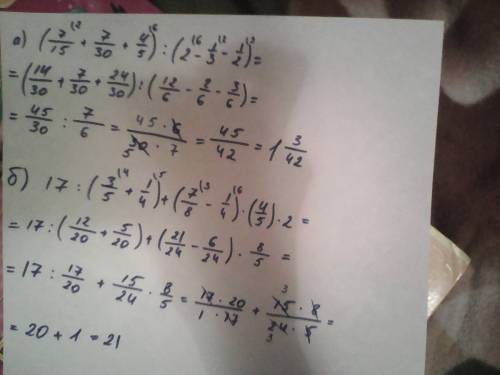 а) (7/15 + 7/30 + 4/5) : (2 - 1/3 - 1/2) =
= (14/30 + 7/30 + 24/30) : (12/6 - 2/6 - 3/6) =
= 45/30 : 7/6 = 45 · 6 / 30 · 7 = 45/42 = 1 3/42
б) 17 : (3/5 + 1/4) + (7/8 - 1/4) · (4/5) · 2 =
= 17 : (12/20 + 5/20) + (21/24 - 6/24) · 8/5 =
= 17 : 17/20 + 15/24 · 8/5 = 17 · 20 / 1 · 17 + 15 · 8 / 24 · 5 =
= 20 + 1 = 21